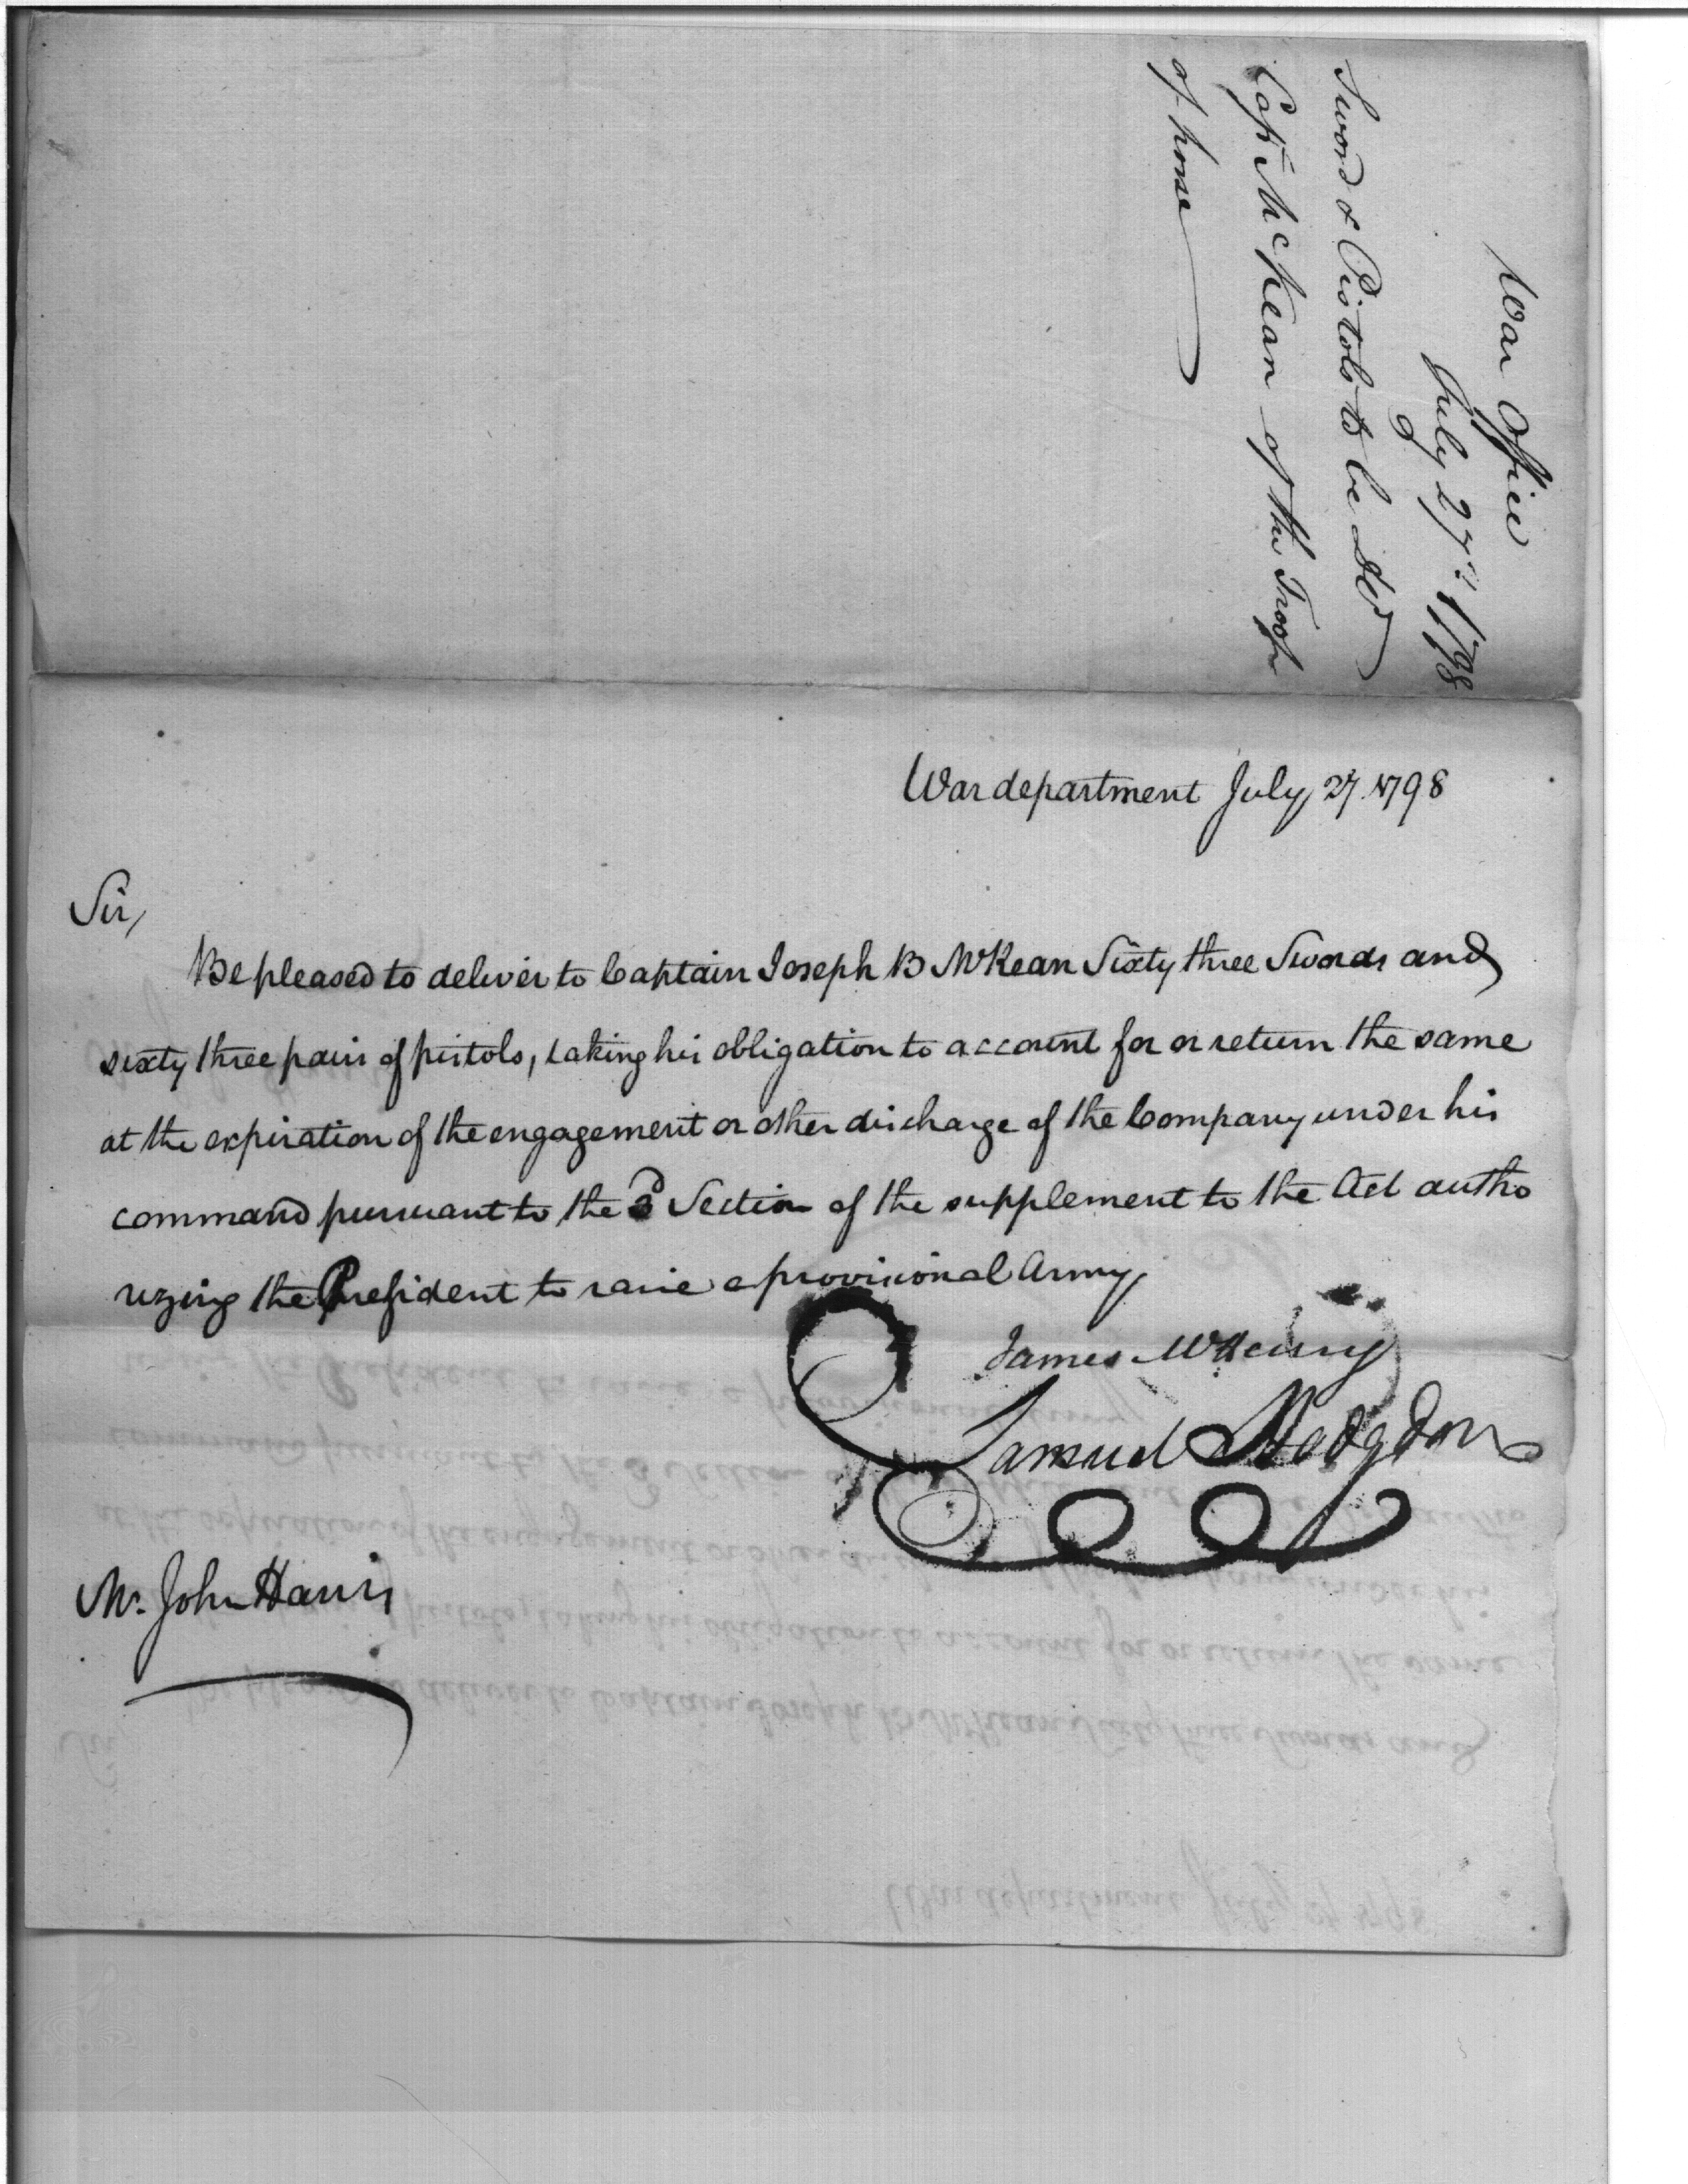 War Office
July 27th 1798
Sword & Pistols to be
Capt McKean of the Troop
of horse
War department July 27. 1798
Sir,
Be pleased to deliver to Captain Joseph B McKean Sixty three Swords and
sixty three pair of pistols, taking his obligation to account for or return the same
at the expiration of the engagement or other discharge of the Company under his
command pursuant to the 3d Section of the supplement to the Act autho
rizing the President to raise a provisional Army,
James McHenry
Samuel Hodgdon
Mr. John Harris